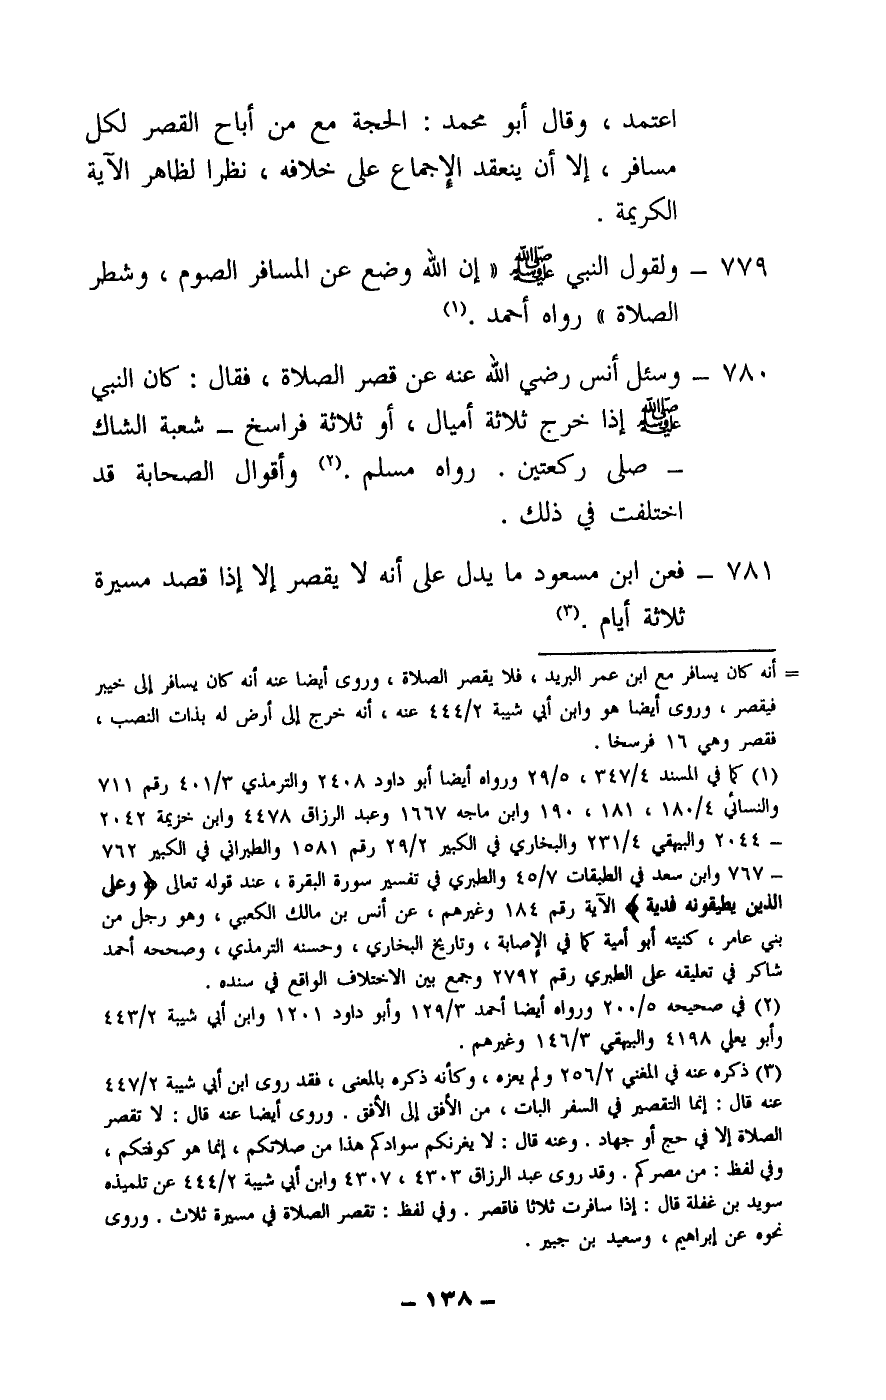 اعتمد ، وقال أبو محمد : الحجة مع من أباح القصر لكل
مسافر ، إلا أن ينعقد الإجماع على خلافه ، نظرا لظاهر الآية
الكريمة .
٧٧٩ – ولقول النبي ﷺ « إن الله وضع عن المسافر الصوم ، وشطر
الصلاة » رواه أحمد .(١)
٧٨٠ – وسئل أنس رضي الله عنه عن قصر الصلاة ، فقال : كان النبي
ﷺ إذا خرج ثلاثة أميال ، أو ثلاثة فراسخ – شعبة الشاك
– صلى ركعتين . رواه مسلم .(٢) وأقوال الصحابة قد
اختلفت في ذلك .
٧٨١ – فعن ابن مسعود ما يدل على أنه لا يقصر إلا إذا قصد مسيرة
ثلاثة أيام .(٣)
= أنه كان يسافر مع ابن عمر البريد ، فلا يقصر الصلاة ، وروى أيضا عنه أنه كان يسافر إلى خيبر
فيقصر ، وروى أيضا هو وابن أبي شيبة ٤٤٤/٢ عنه ، أنه خرج إلى أرض له بذات النصب ،
فقصر وهي ١٦ فرسخا .
(١) كما في المسند ٣٤٧/٤ ، ٢٩/٥ ورواه أيضا أبو داود ٢٤٠٨ والترمذي ٤٠١/٣ رقم ٧١١
والنسائي ١٨٠/٤ ، ١٨١ ، ١٩٠ وابن ماجه ١٦٦٧ وعبد الرزاق ٤٤٧٨ وابن خزيمة ٢٠٤٢
– ٢٠٤٤ والبيهقي ٢٣١/٤ والبخاري في الكبير ٢٩/٢ رقم ١٥٨١ والطبراني في الكبير ٧٦٢
– ٧٦٧ وابن سعد في الطبقات ٤٥/٧ والطبري في تفسير سورة البقرة ، عند قوله تعالى ﴿ وعلى
الذين يطيقونه فدية ﴾ الآية رقم ١٨٤ وغيرهم ، عن أنس بن مالك الكعبي ، وهو رجل من
بني عامر ، كنيته أبو أمية كما في الإصابة ، وتاريخ البخاري ، وحسنه الترمذي ، وصححه أحمد
شاكر في تعليقه على الطبري رقم ٢٧٩٢ وجمع بين الاختلاف الواقع في سنده .
(٢) في صحيحه ٢٠٠/٥ ورواه أيضا أحمد ١٢٩/٣ وأبو داود ١٢٠١ وابن أبي شيبة ٤٤٣/٢
وأبو يعلي ٤١٩٨ والبيهقي ١٤٦/٣ وغيرهم .
(٣) ذكره عنه في المغني ٢٥٦/٢ ولم يعزه ، وكأنه ذكره بالمعنى ، فقد روى ابن أبي شيبة ٤٤٧/٢
عنه قال : إنما التقصير في السفر البات ، من الأفق إلى الأفق . وروى أيضا عنه قال : لا تقصر
الصلاة إلا في حج أو جهاد . وعنه قال : لا يغرنكم سوادكم هذا من صلاتكم ، إنما هو كوفتكم ،
وفي لفظ : من مصركم . وقد روى عبد الرزاق ٤٣٠٣ ، ٤٣٠٧ وابن أبي شيبة ٤٤٤/٢ عن تلميذه
سويد بن غفلة قال : إذا سافرت ثلاثا فاقصر . وفي لفظ : تقصر الصلاة في مسيرة ثلاث . وروى
نحوه عن إبراهيم ، وسعيد بن جبير .
– ١٣٨ –